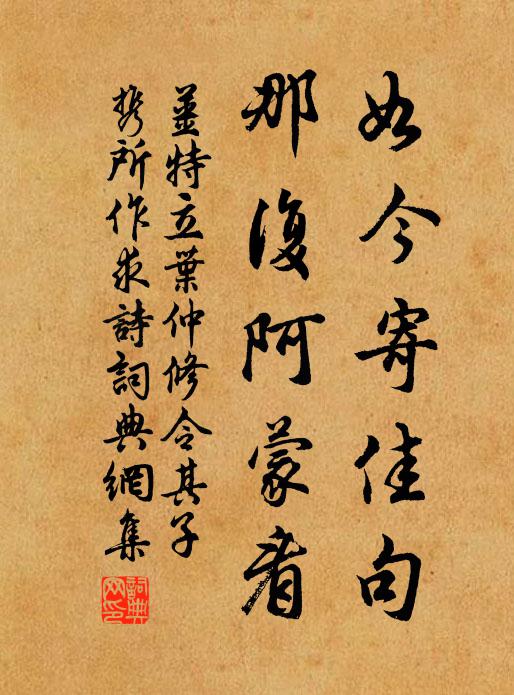 如今寄佳句
那復阿蒙看
姜特立葉仲修令其子
携所作求詩詞典網集
詞典網印